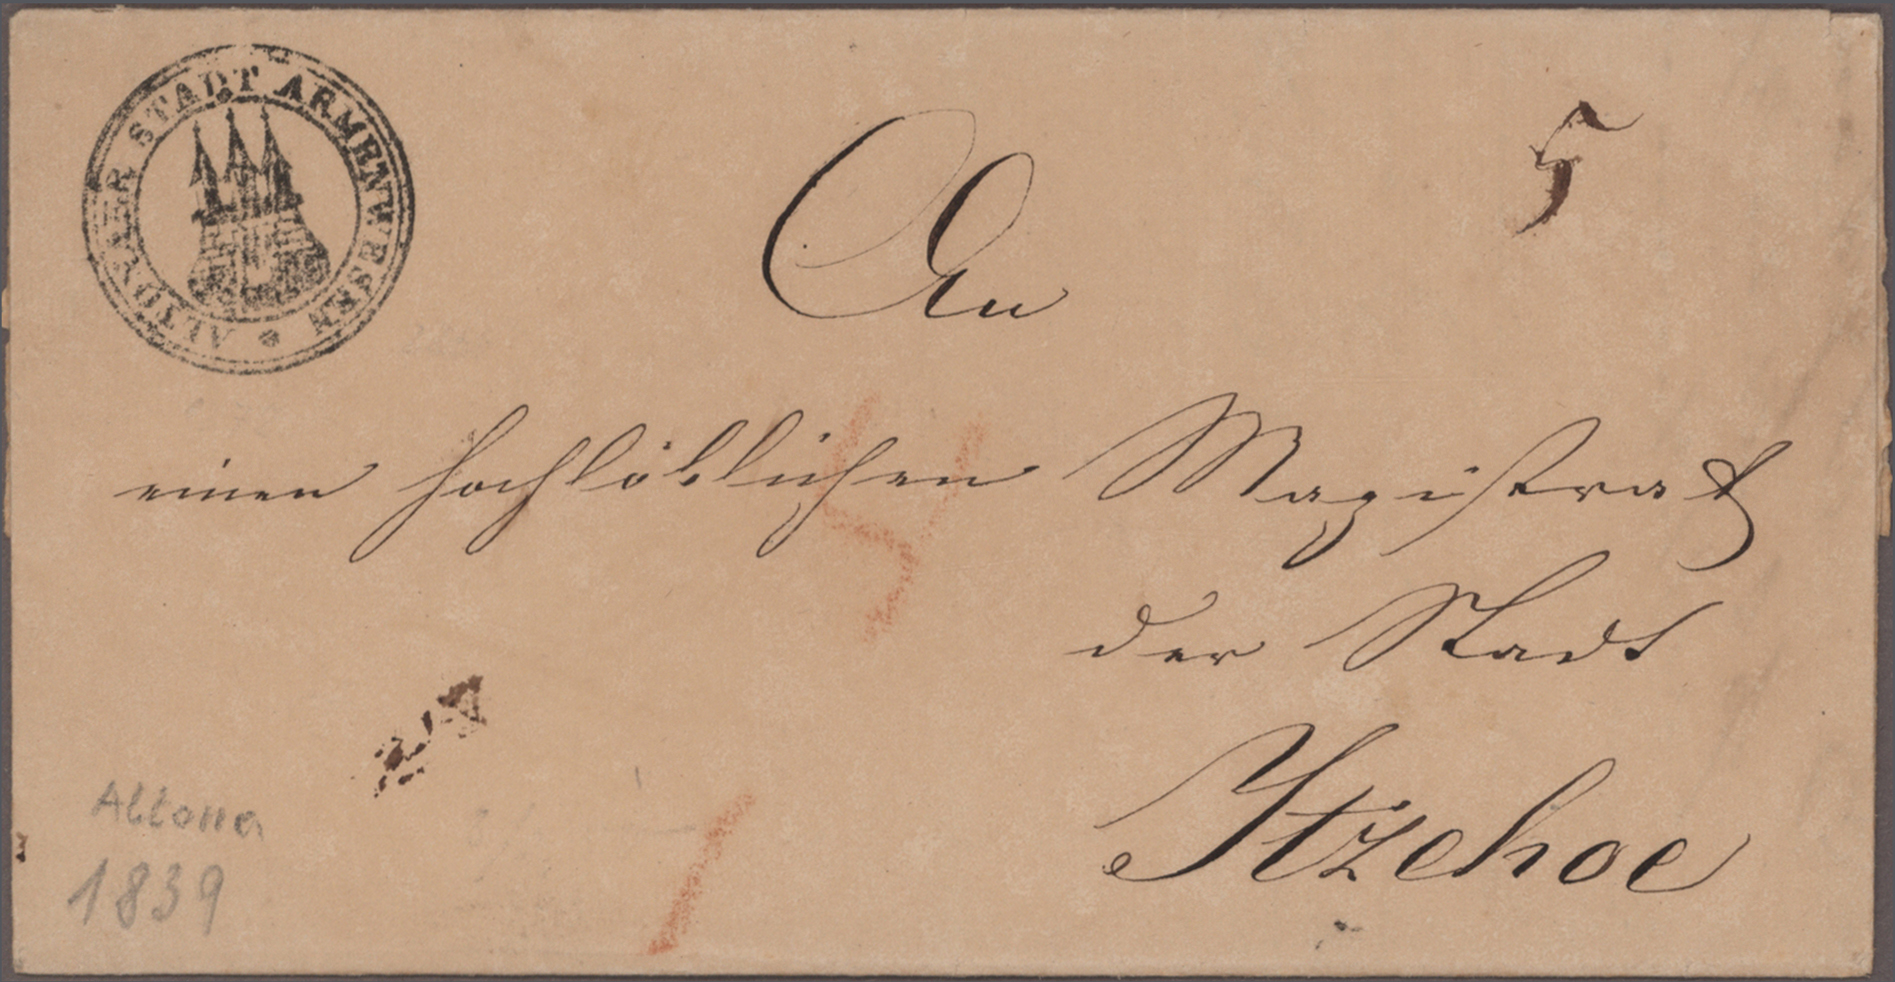 ALTONAER STADT ARMENWESEN
5
An
einen hochlöblichen Magistrat
der Stadt
Itzehoe
Altona
1839